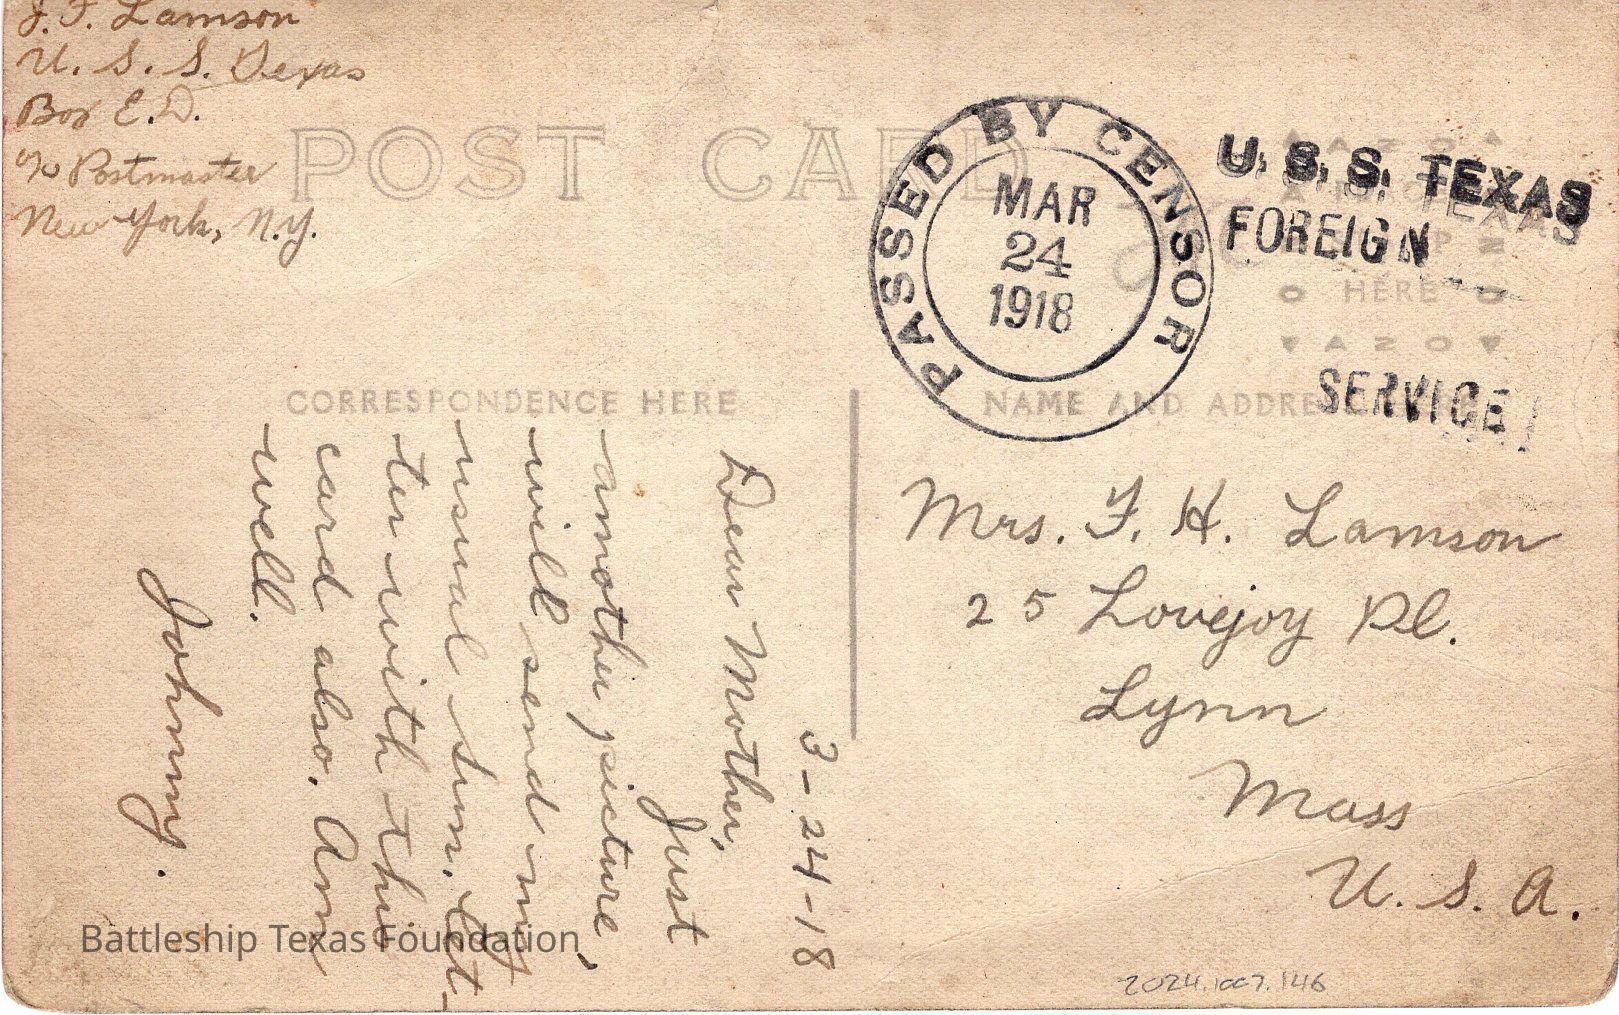 J. F. Lamson
U. S. S. Texas
Box E.D.
℅ Postmaster
New York, N.Y.
POST CARD
PASSED BY CENSOR
MAR
24
1918
U. S. S. TEXAS
FOREIGN
SERVICE
AZO
HERE
AZO
CORRESPONDENCE HERE
NAME AND ADDRE
3-24-18
Dear Mother,
Just
another picture
will send my
usual sum. let-
ter with this
card also. Am
well.
Johnny.
Mrs. F. H. Lamson
25 Lovejoy Pl.
Lynn
Mass
U. S. A.
Battleship Texas Foundation
2024.1007.146